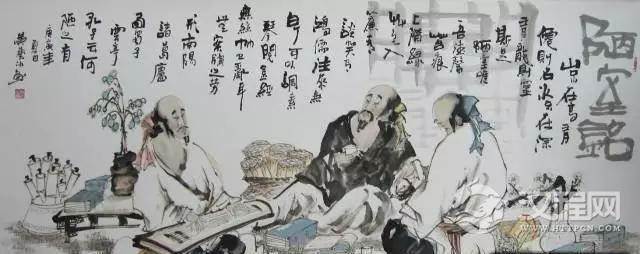 陋室銘
山不在高有
僊則名水不在深
有龍則靈
斯是
陋室唯
吾德馨
苔痕
上階綠
草色入
簾青
談笑有
鴻儒往來無
白丁可以調素
琴閱金經
無絲竹之亂耳
無案牘之勞
形南陽
諸葛廬
西蜀子
雲亭
孔子云何
陋之有
庚寅年
夏日
汉程网
HTTPCN.COM